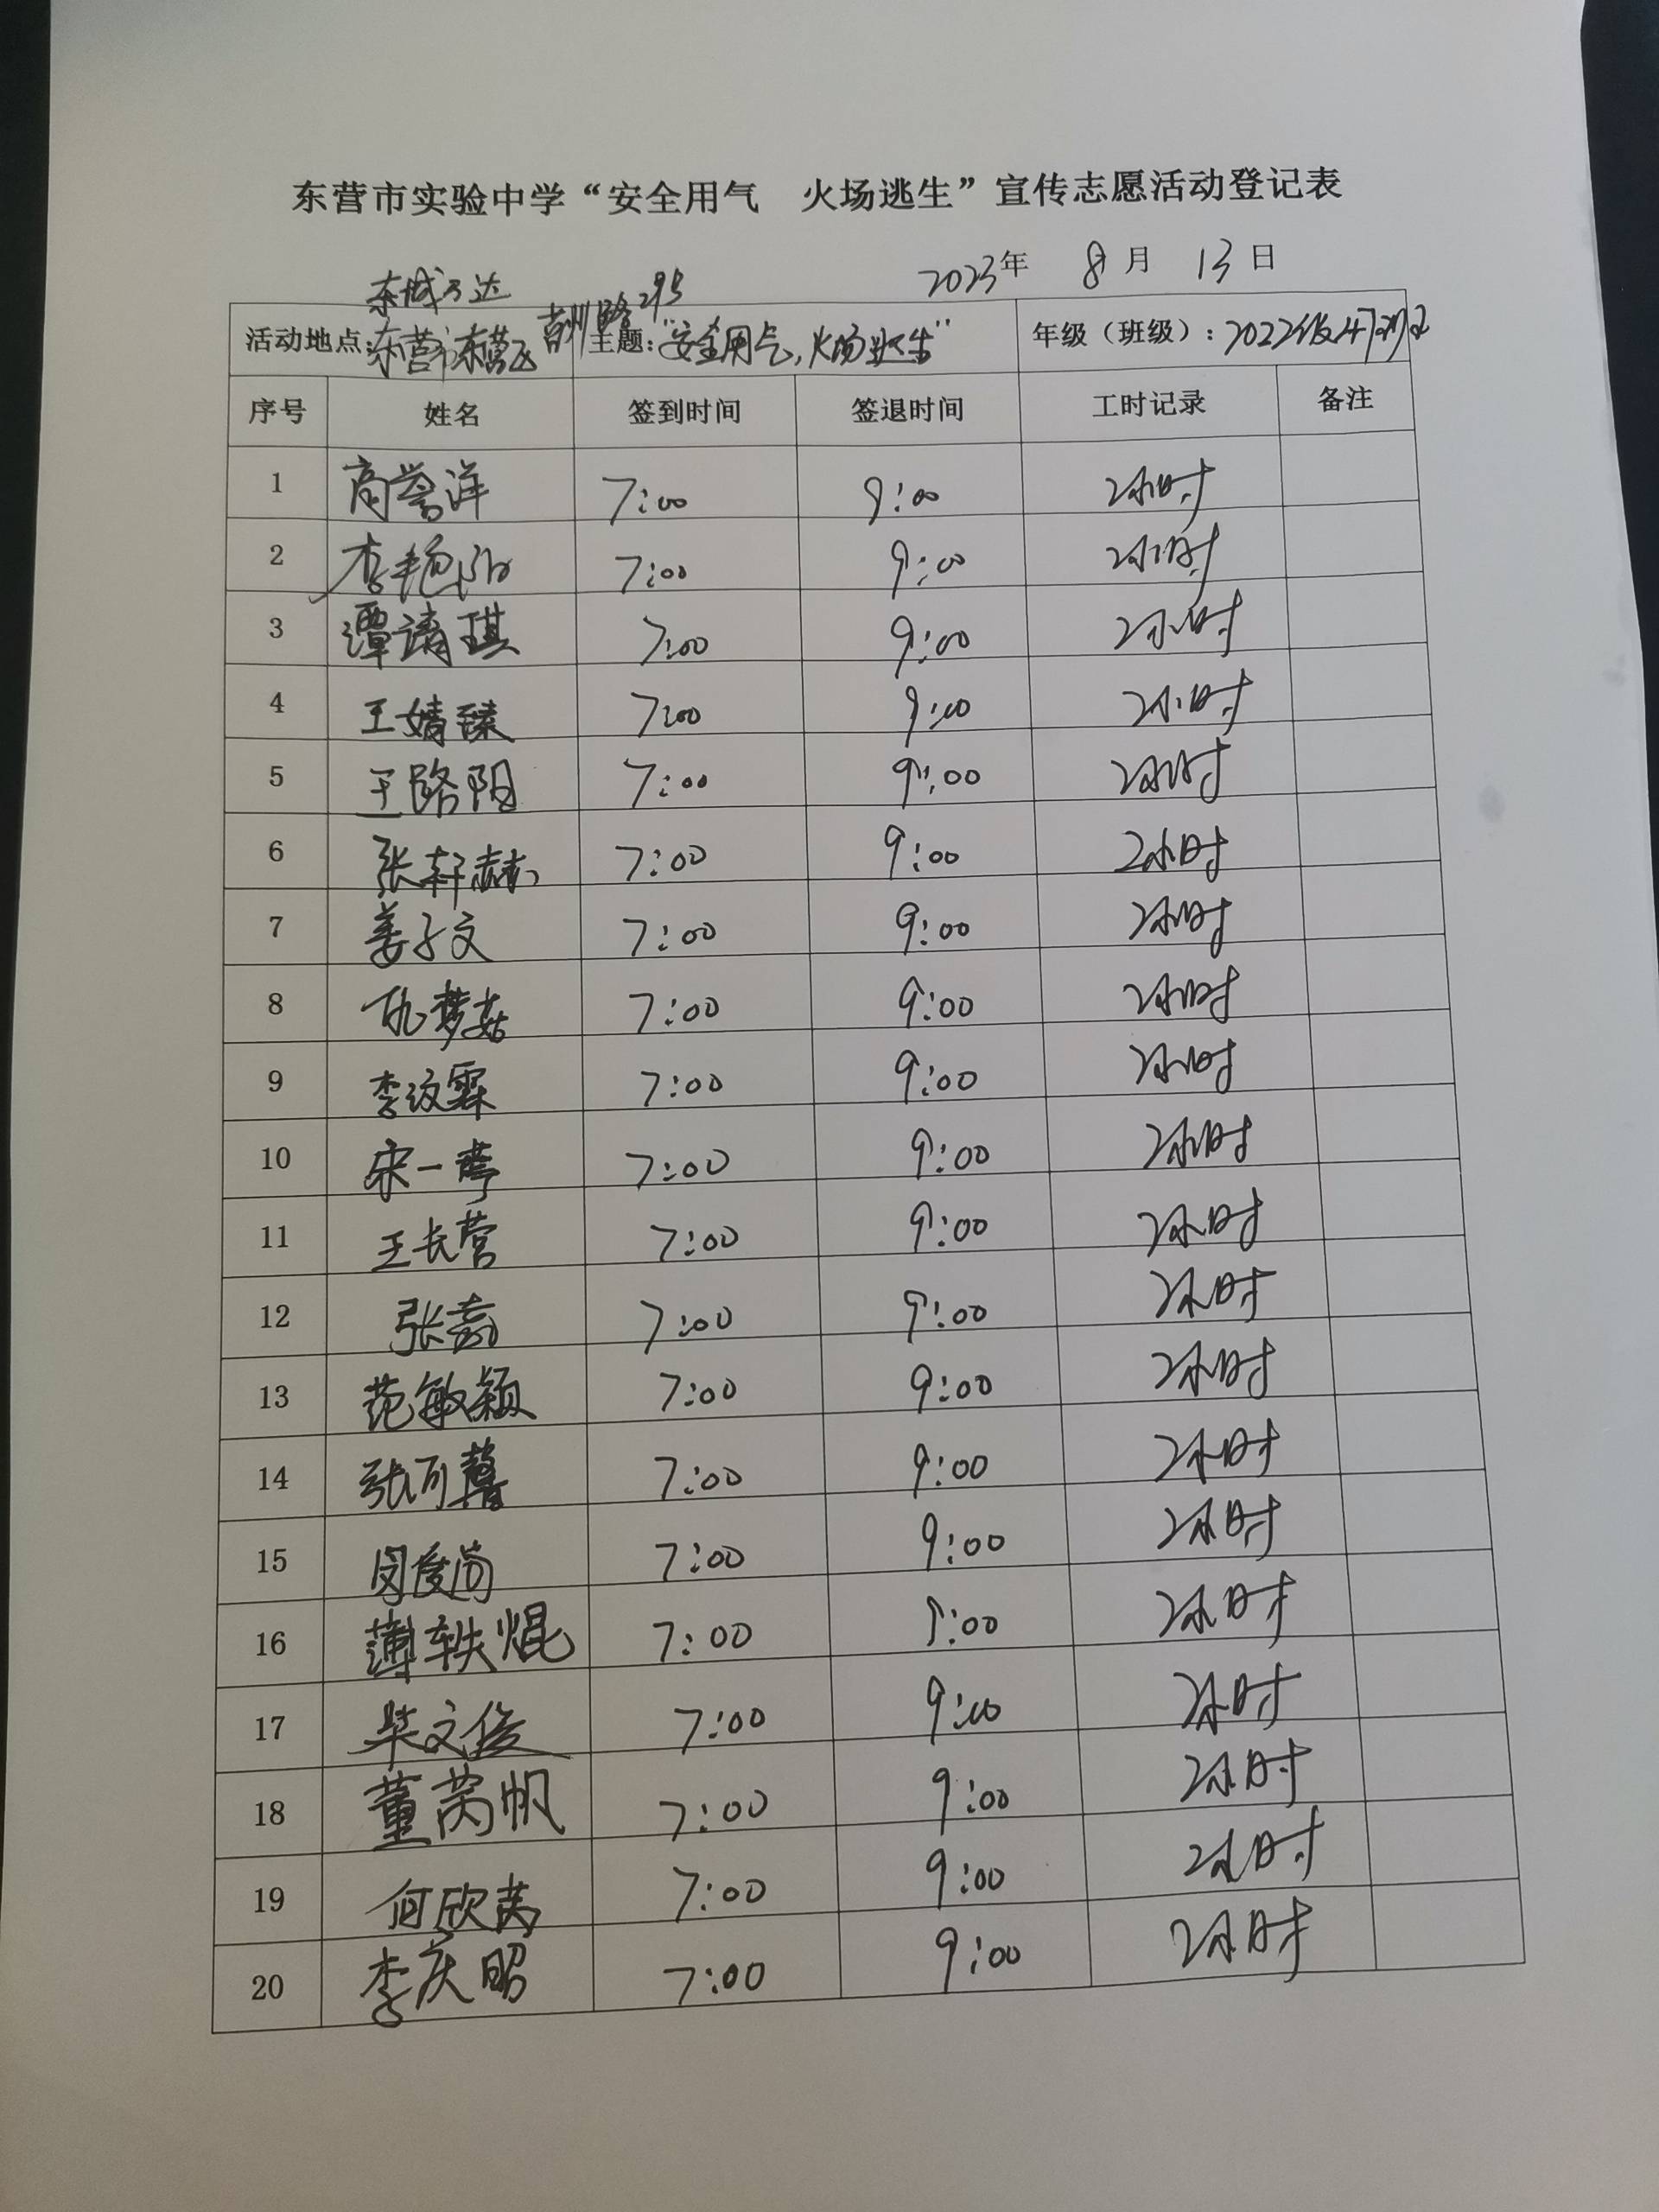 东营市实验中学“安全用气 火场逃生”宣传志愿活动登记表
2023年 8月 13日
东城万达
莒州路295
活动地点:东营市东营区 主题:“安全用气,火场逃生” 年级(班级):2022级47班
序号 姓名 签到时间 签退时间 工时记录 备注
1 商誉洋 7:00 9:00 2小时
2 李艳阳 7:00 9:00 2小时
3 谭靖琪 7:00 9:00 2小时
4 王婧臻 7:00 9:00 2小时
5 王路阳 7:00 9:00 2小时
6 张轩赫 7:00 9:00 2小时
7 姜子文 7:00 9:00 2小时
8 仇梦菇 7:00 9:00 2小时
9 李汶霖 7:00 9:00 2小时
10 宋一 7:00 9:00 2小时
11 王长营 7:00 9:00 2小时
12 张嘉 7:00 9:00 2小时
13 范敏颖 7:00 9:00 2小时
14 张可馨 7:00 9:00 2小时
15 闵俊尚 7:00 9:00 2小时
16 薄轶焜 7:00 9:00 2小时
17 毕文俊 7:00 9:00 2小时
18 董芮帆 7:00 9:00 2小时
19 何欣芮 7:00 9:00 2小时
20 李庆昭 7:00 9:00 2小时